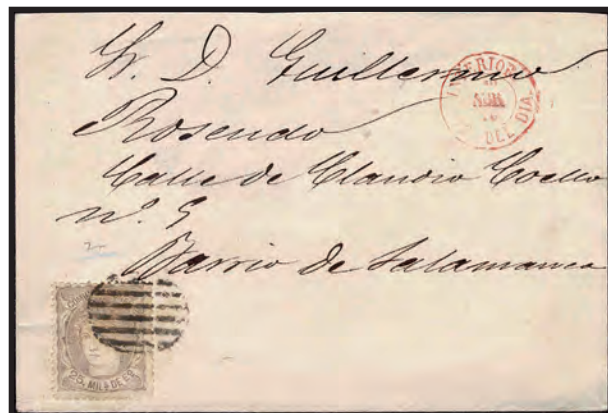 Sr. D. Guillermo
Rosendo
Calle de Claudio Coello
nº. 9
Barrio de Salamanca
INTERIOR
DEL DIA.
25 MILS DE E